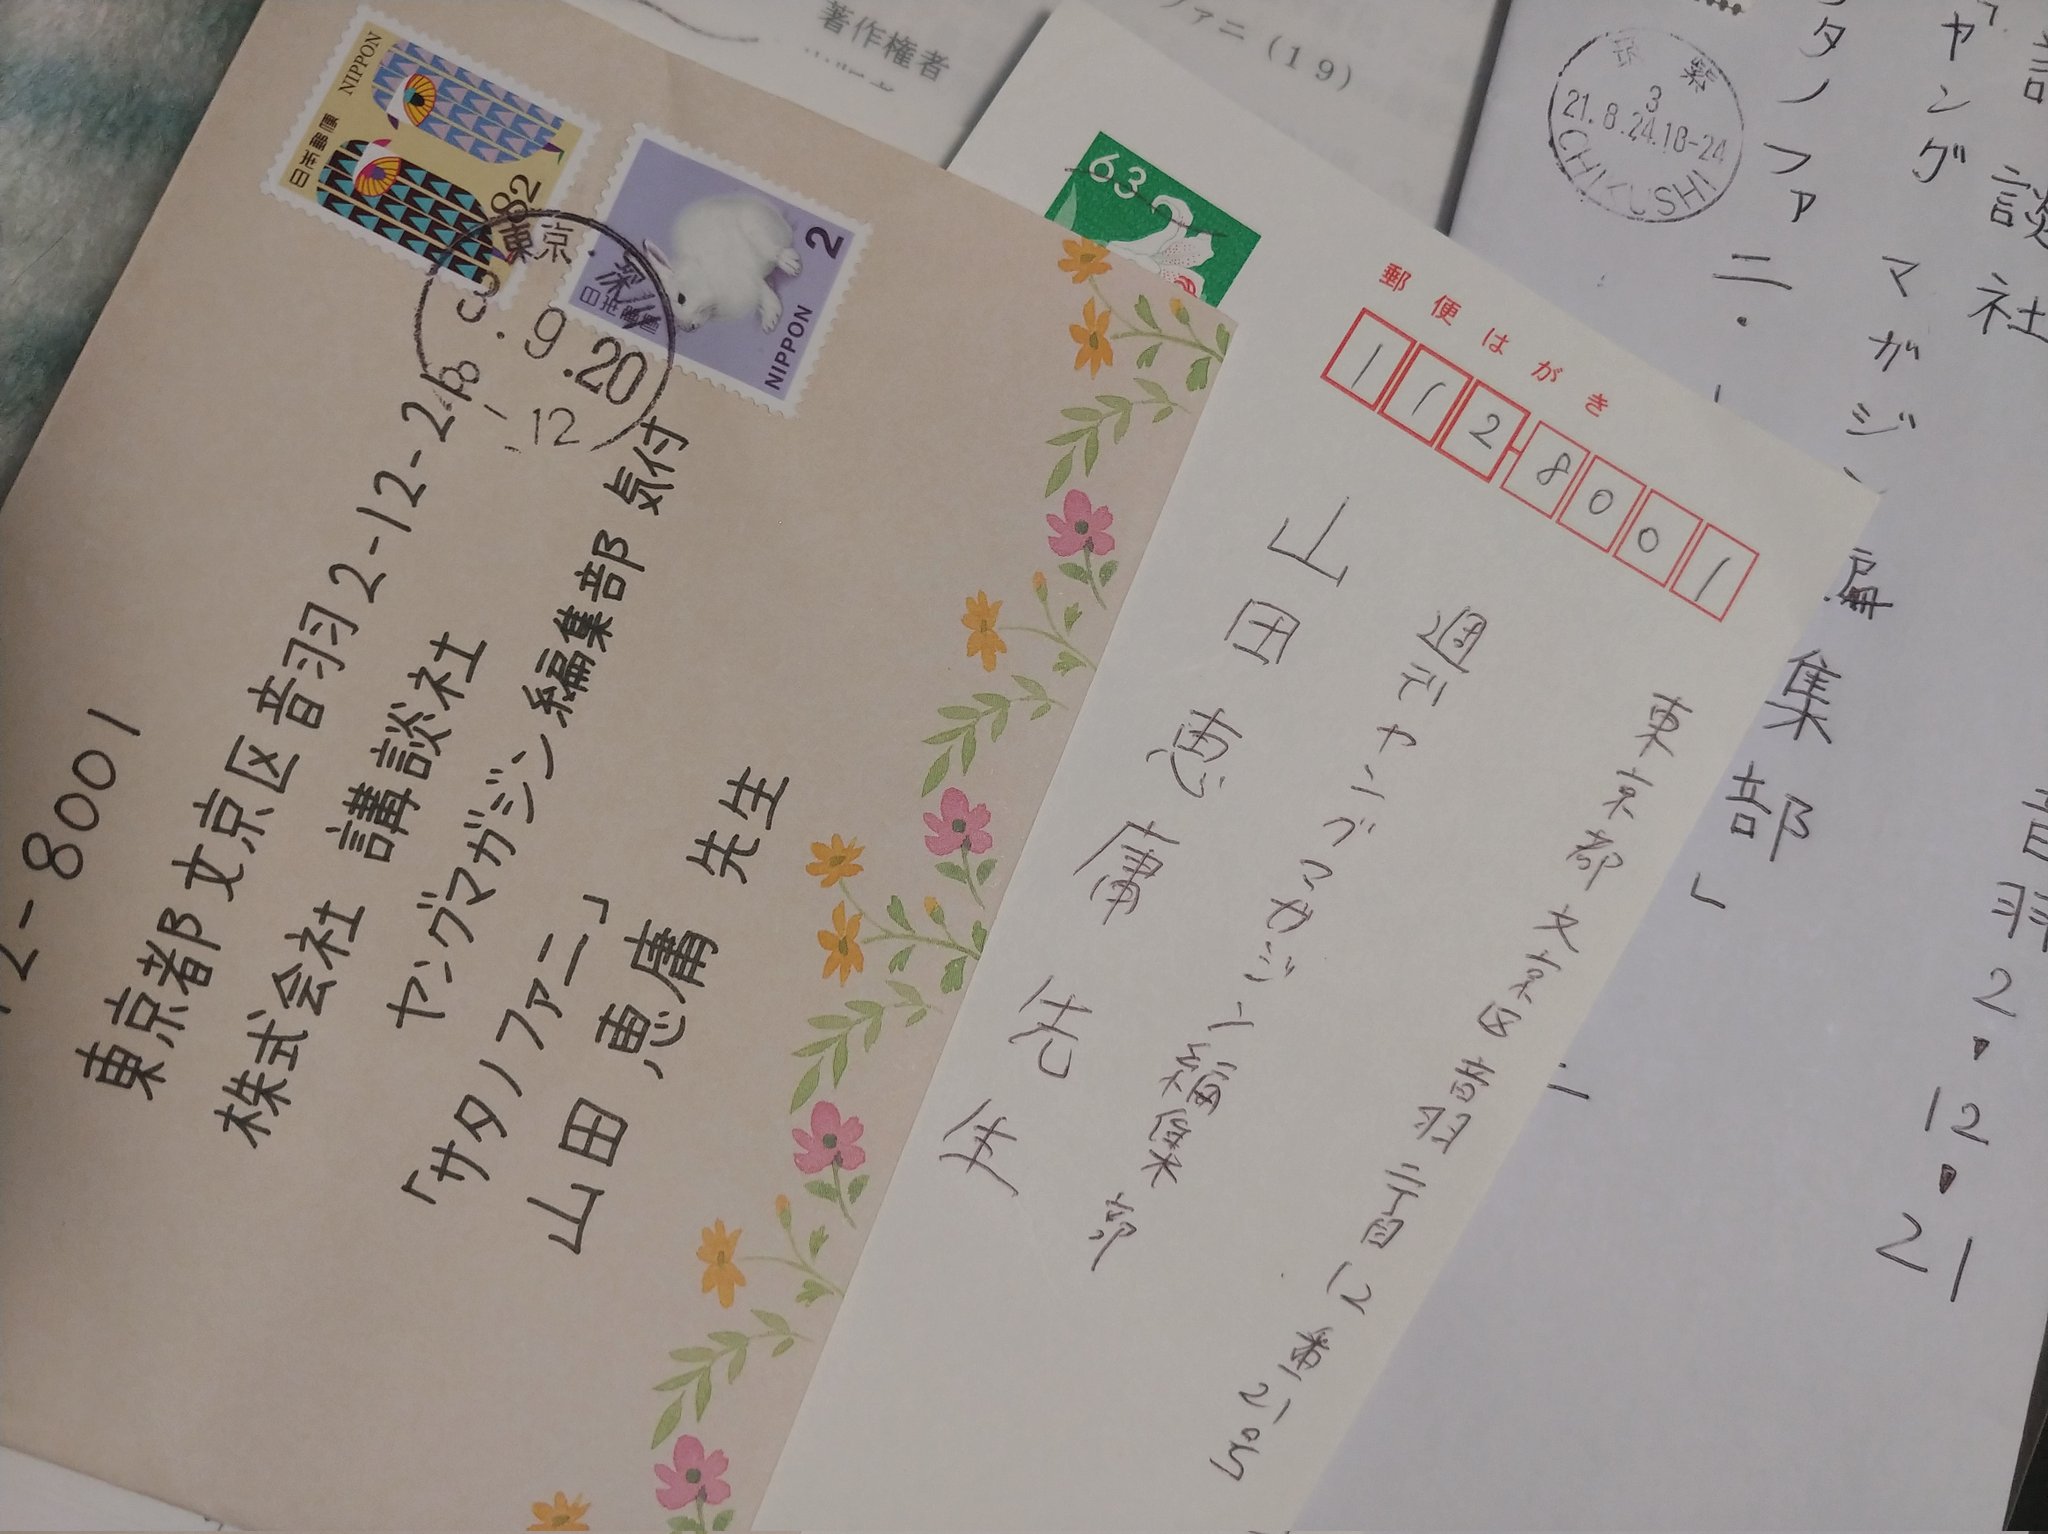 著作権者
ファニ(19)
NIPPON
日本郵便
82
2
日本郵便
NIPPON
東京
深川
3.9.20
12
2-8001
東京都文京区音羽2-12-21
株式会社 講談社
ヤングマガジン編集部 気付
「サタノファニ」
山田 恵庸 先生
63
郵便はがき
112-8001
東京都文京区音羽二丁目12番21号
週刊ヤングマガジン編集部
山田恵庸先生
筑紫
3
21.8.24.18-24
CHIKUSHI
音羽2・12・21
談社
「ヤングマガジン編集部」
タノファニ・